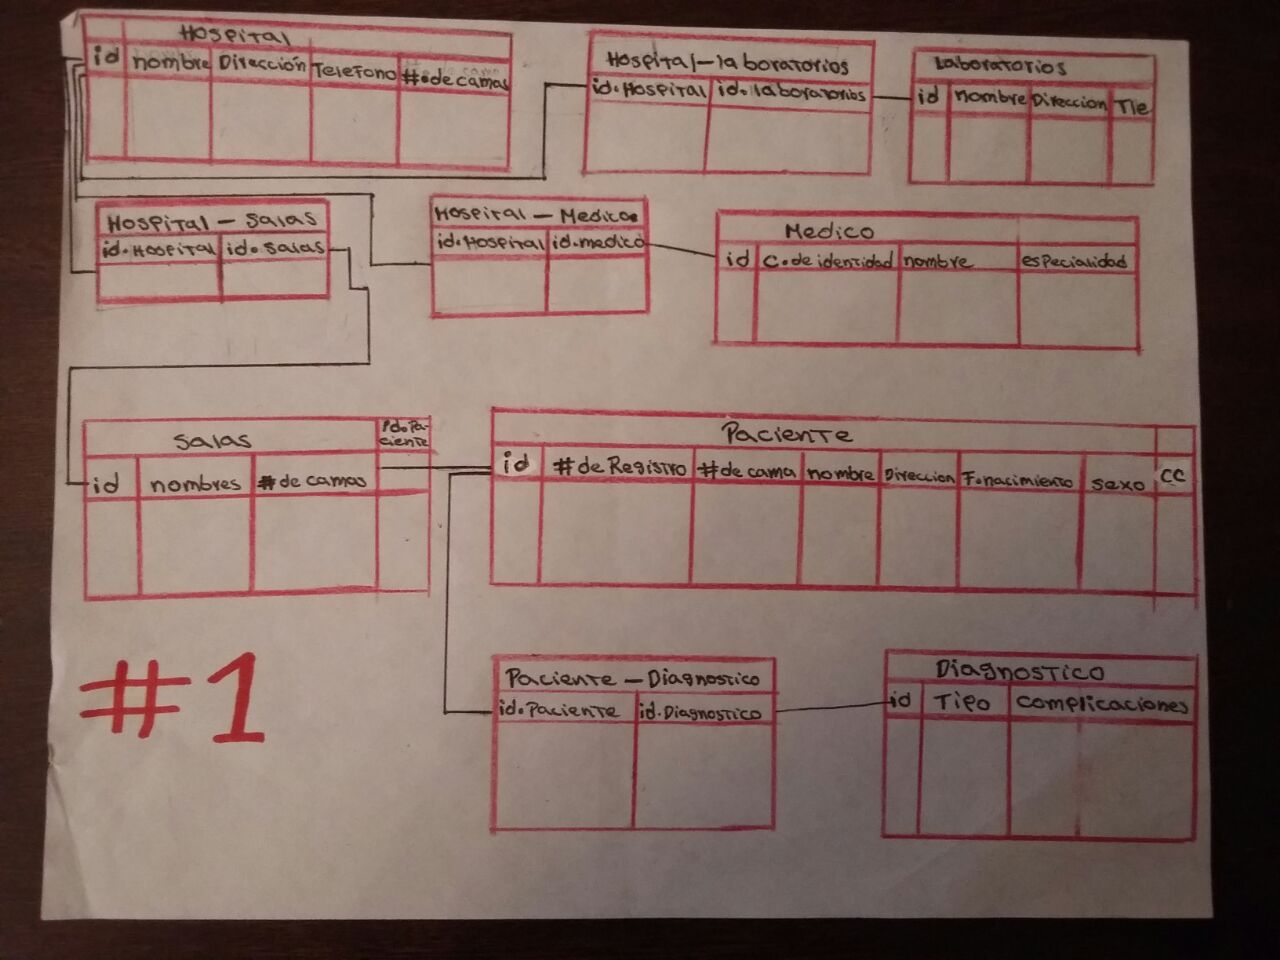 Hospital
id nombre Dirección Telefono #.de camas
Hospital-laboratorios
id.Hospital id.laboratorios
Laboratorios
id nombre Direccion Tle
Hospital - Salas
id.Hospital id.salas
Hospital - Medico
id.Hospital id.medico
Medico
id C.de identidad nombre especialidad
Salas
id nombres # de camas
Paciente
id # de Registro # de cama nombre Direccion F.nacimiento sexo CC
#1
Paciente - Diagnostico
id.Paciente id.Diagnostico
Diagnostico
id Tipo complicaciones